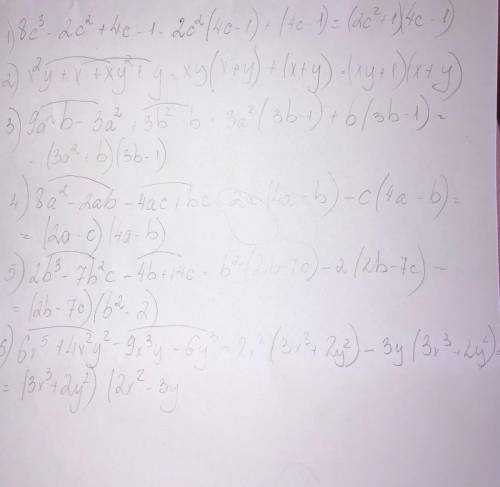 1) 8c³ - 2c² + 4c - 1 - 2c²(4c-1) + (4c-1) = (2c²+1)(4c-1)
2) x²y + x + xy² + y = xy(x+y) + (x+y) = (xy+1)(x+y)
3) 9a²b - 3a² + 3b² - b = 3a²(3b-1) + b(3b-1) =
= (3a²+b)(3b-1)
4) 8a² - 2ab - 4ac + bc = 2a(4a-b) - c(4a-b) =
= (2a-c)(4a-b)
5) 2b³ - 7b²c - 4b + 14c = b²(2b-7c) - 2(2b-7c) =
= (2b-7c)(b²-2)
6) 6x⁵ + 4x²y² - 9x³y - 6y³ = 2x²(3x³+2y²) - 3y(3x³+2y²) =
= (3x³+2y²)(2x²-3y